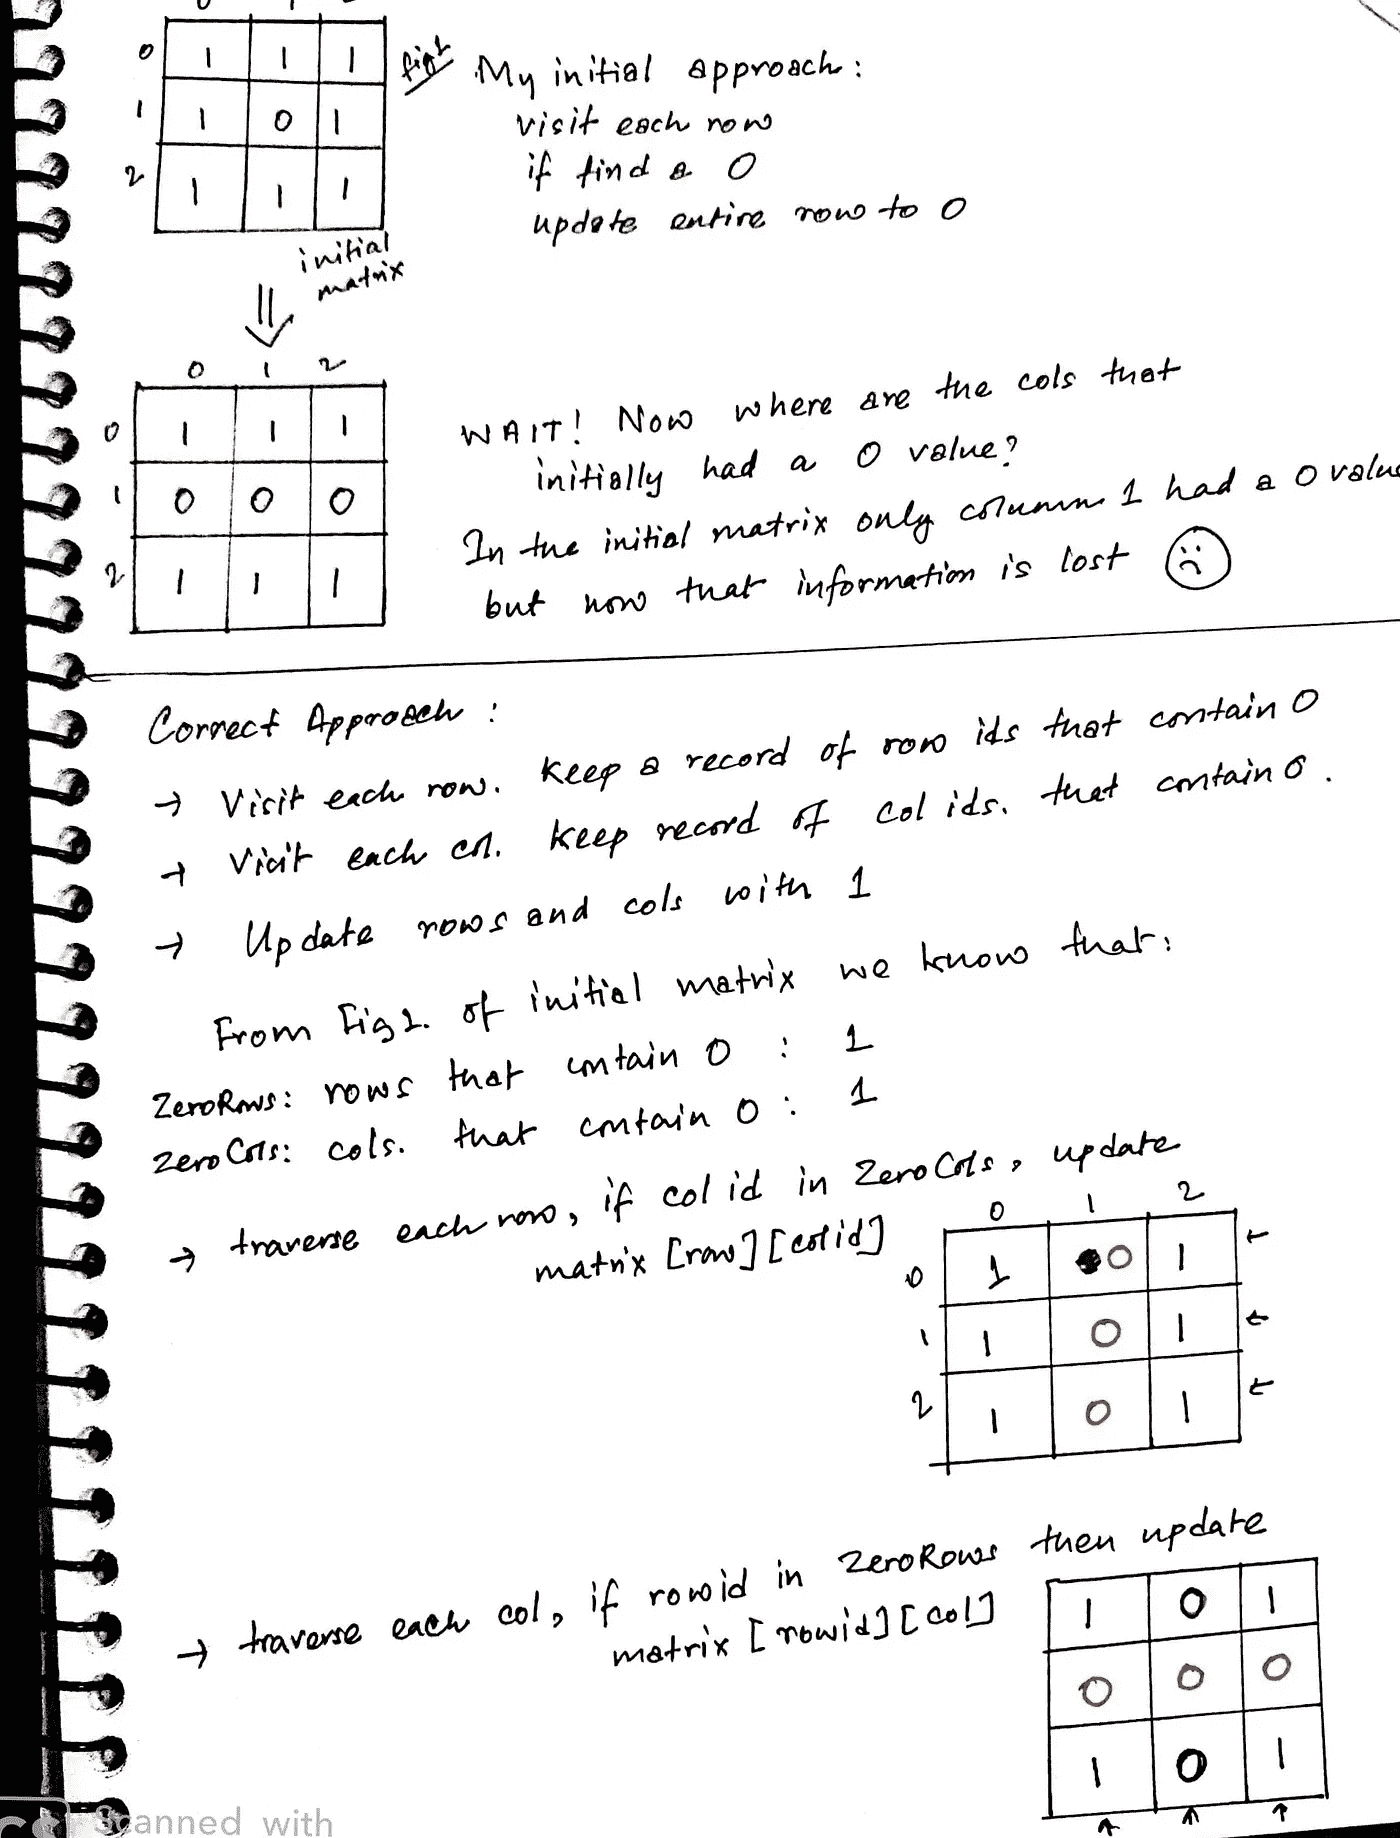 0 1 2
0 1 1 1
1 1 0 1
2 1 1 1
fig 1
initial
matrix
My initial approach:
visit each row
if find a 0
update entire row to 0
0 1 2
0 1 1 1
1 0 0 0
2 1 1 1
WAIT! Now where are the cols that
initially had a 0 value?
In the initial matrix only column 1 had a 0 value
but now that information is lost
Correct Approach:
→ Visit each row. Keep a record of row ids that contain 0
→ Visit each col. Keep record of col ids. that contain 0.
→ Update rows and cols with 1
From Fig 1. of initial matrix we know that:
ZeroRows: rows that contain 0 : 1
ZeroCols: cols. that contain 0 : 1
→ traverse each row, if col id in ZeroCols, update
matrix [row][colid]
0 1 2
0 1 0 1 ←
1 1 0 1 ←
2 1 0 1 ←
→ traverse each col, if rowid in ZeroRows then update
matrix [rowid][col]
1 0 1
0 0 0
1 0 1
↑ ↑ ↑
CS Scanned with